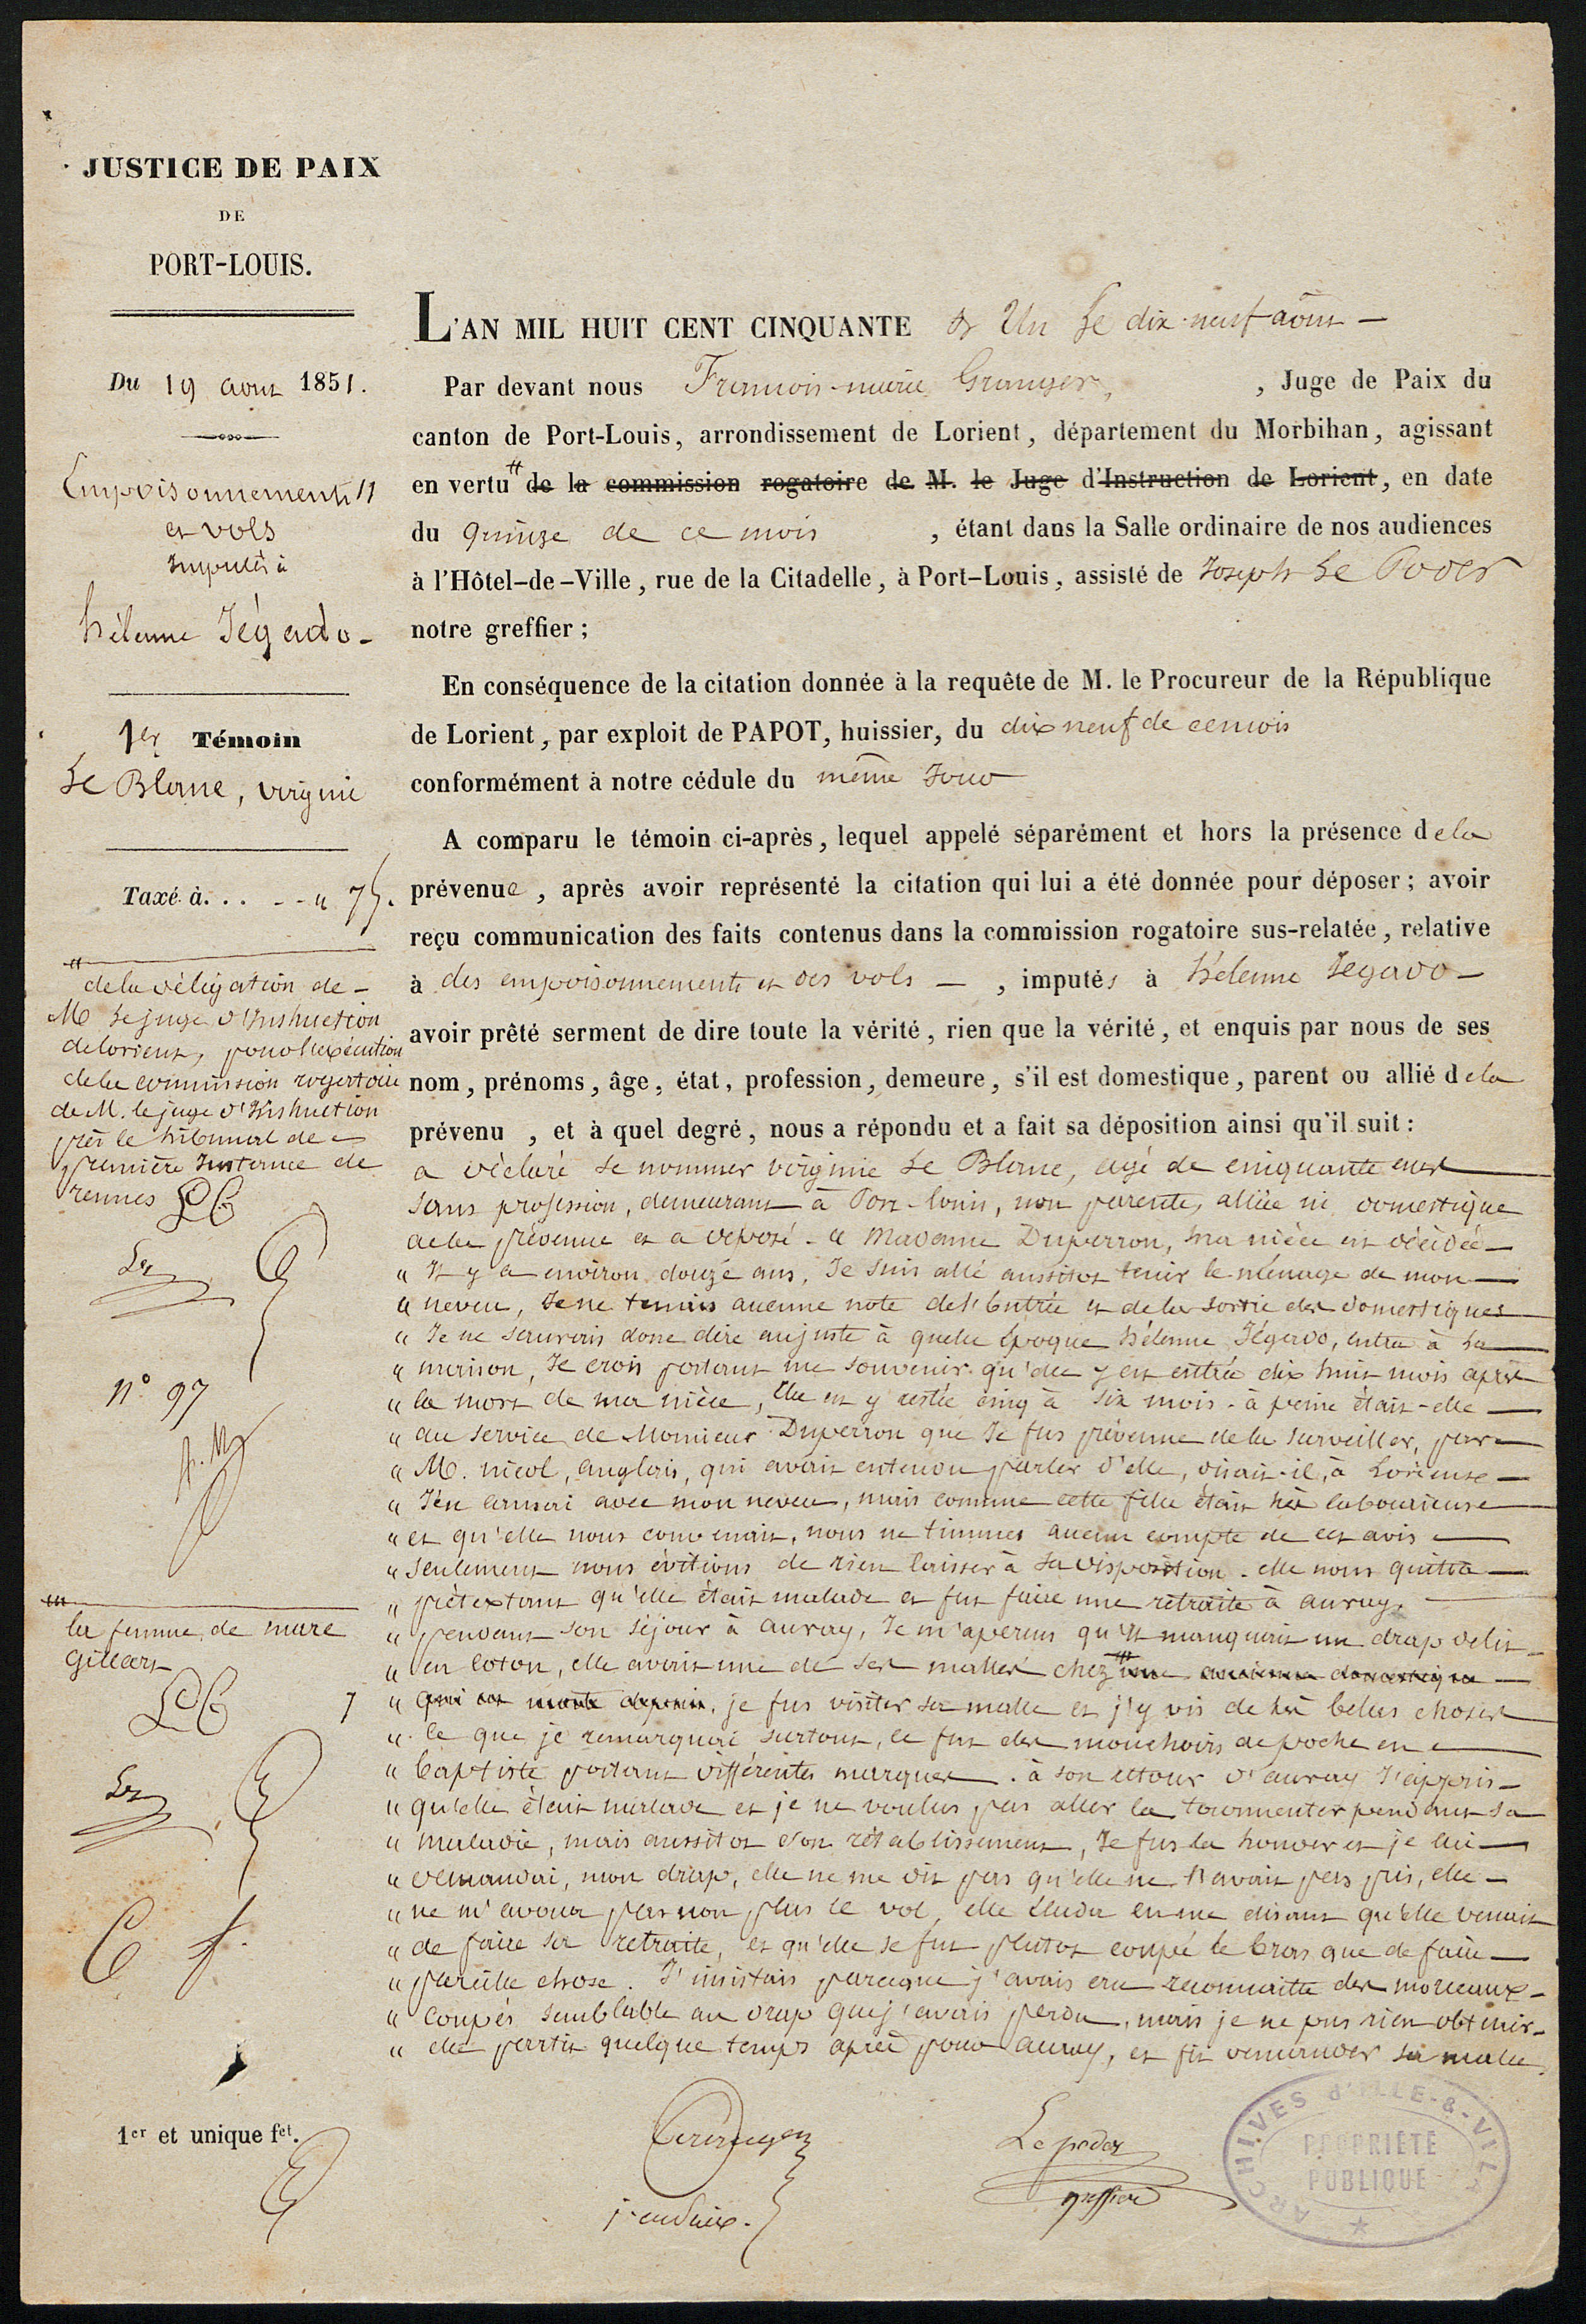 JUSTICE DE PAIX
DE
PORT-LOUIS.
Du 19 aout 1851.
Empoisonnements
et vols
Imputés à
hélenne Jégado -
1er Témoin
Le Blanc, virginie
Taxé à. . . - - " 75.
de la délégation de -
M le juge d'Instruction
de lorient, pour l'exécution
de la commission rogatoire
de M. le juge d'Instruction
près le tribunal de
première Instance de
rennes
n° 97
la femme de marc
Gillart
1er et unique fet.
L'AN MIL HUIT CENT CINQUANTE & Un Le dix-neuf aout -
Par devant nous François-marie Granger, , Juge de Paix du
canton de Port-Louis, arrondissement de Lorient, département du Morbihan, agissant
en vertu de la commission rogatoire de M. le Juge d'Instruction de Lorient, en date
du quinze de ce mois , étant dans la Salle ordinaire de nos audiences
à l'Hôtel-de-Ville, rue de la Citadelle, à Port-Louis, assisté de Joseph Le Poder
notre greffier ;
En conséquence de la citation donnée à la requête de M. le Procureur de la République
de Lorient, par exploit de PAPOT, huissier, du dix neuf de ce mois
conformément à notre cédule du même Jour
A comparu le témoin ci-après, lequel appelé séparément et hors la présence de la
prévenue , après avoir représenté la citation qui lui a été donnée pour déposer ; avoir
reçu communication des faits contenus dans la commission rogatoire sus-relatée, relative
à des empoisonnements et des vols - , imputés à hélenne Jegado -
avoir prêté serment de dire toute la vérité, rien que la vérité, et enquis par nous de ses
nom, prénoms, âge, état, profession, demeure, s'il est domestique, parent ou allié de la
prévenu , et à quel degré, nous a répondu et a fait sa déposition ainsi qu'il suit :
a déclaré se nommer virginie Le Blanc, agé de cinquante ans
sans profession, demeurant à Port-louis, non parente, alliée ni domestique
de la prévenue et a déposé - " Madame Duperron, ma nièce est décédée -
" Il y a environ douze ans, Je suis allé aussitot tenir le ménage de mon
" neveu, Je ne tenais aucune note de l'Entrée et de la sortie des domestiques
" Je ne saurais donc dire aujuste à quelle époque hélenne Jégado, entra à la
" maison, Je crois portant me souvenir qu'elle y est entrée dix huit mois après
" la mort de ma nièce, Elle est y restée cinq à six mois - à peine était-elle
" au service de Monsieur Duperron que Je fus prévenue de la surveiller, par
" M. nicol, anglais, qui avait entendu parler d'elle, disait-il, à Lorient -
" J'en causai avec mon neveu, mais comme cette fille était très labourieuse
" et qu'elle nous convenait, nous ne tinmes aucun compte de cet avis
" seulement nous évitions de rien laisser à sa disposition. elle nous quitta
" prétextant qu'elle était malade et fut faire une retraite à auray.
" pendant son séjour à auray, Je m'aperçus qu'Il manquait un drap de lit
" en coton, elle avait une de ses malles chez une ancienne domestique
" qui est morte depuis, je fus visiter sa malle et j'y vis de très belles choses
" ce que je remarquai surtout, ce fut des mouchoirs de poche en
" baptiste portant différentes marques. à son retour d'auray J'appris -
" qu'elle était malade et je ne voulus pas aller la tourmenter pendant sa
" maladie, mais aussitot son rétablissement, Je fus la trouver et je lui
" demandai, mon drap, elle ne me dit pas qu'elle ne l'avait pas pris, elle -
" ne m'avoua pas non plus le vol, elle éluda en me disant qu'elle venait
" de faire sa retraite, et qu'elle se fut plutot coupé le bras que de faire
" pareille chose. J'insistais parceque j'avais cru reconnaitre des morceaux -
" coupés semblable au drap que j'avais perdu, mais je ne pus rien obtenir -
" elle partit quelque temps après pour auray, et fit demander sa malle
Granger
j. de paix.
Le poder
greffier
ARCHIVES D'ILLE-&-VIL.
PROPRIÉTÉ
PUBLIQUE